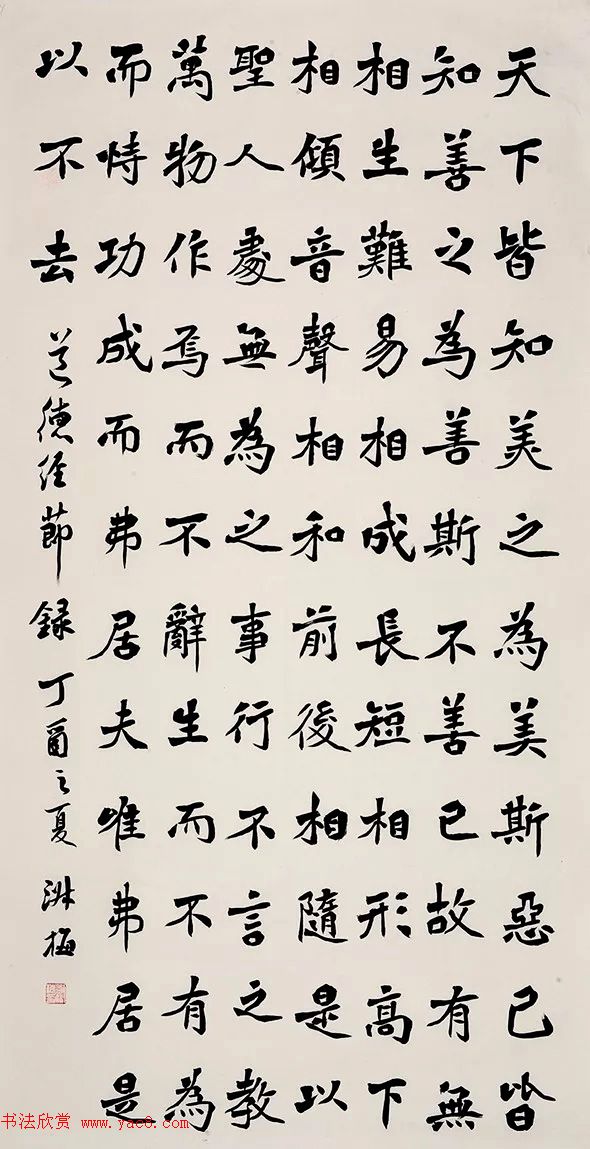 天下皆知美之為美斯惡已皆
知善之為善斯不善已故有無
相生難易相成長短相形高下
相傾音聲相和前後相隨是以
聖人處無為之事行不言之教
萬物作焉而不辭生而不有為
而恃功成而弗居夫唯弗居是
以不去 道德經節録 丁酉之夏 梅
书法欣赏 www.yac8.com